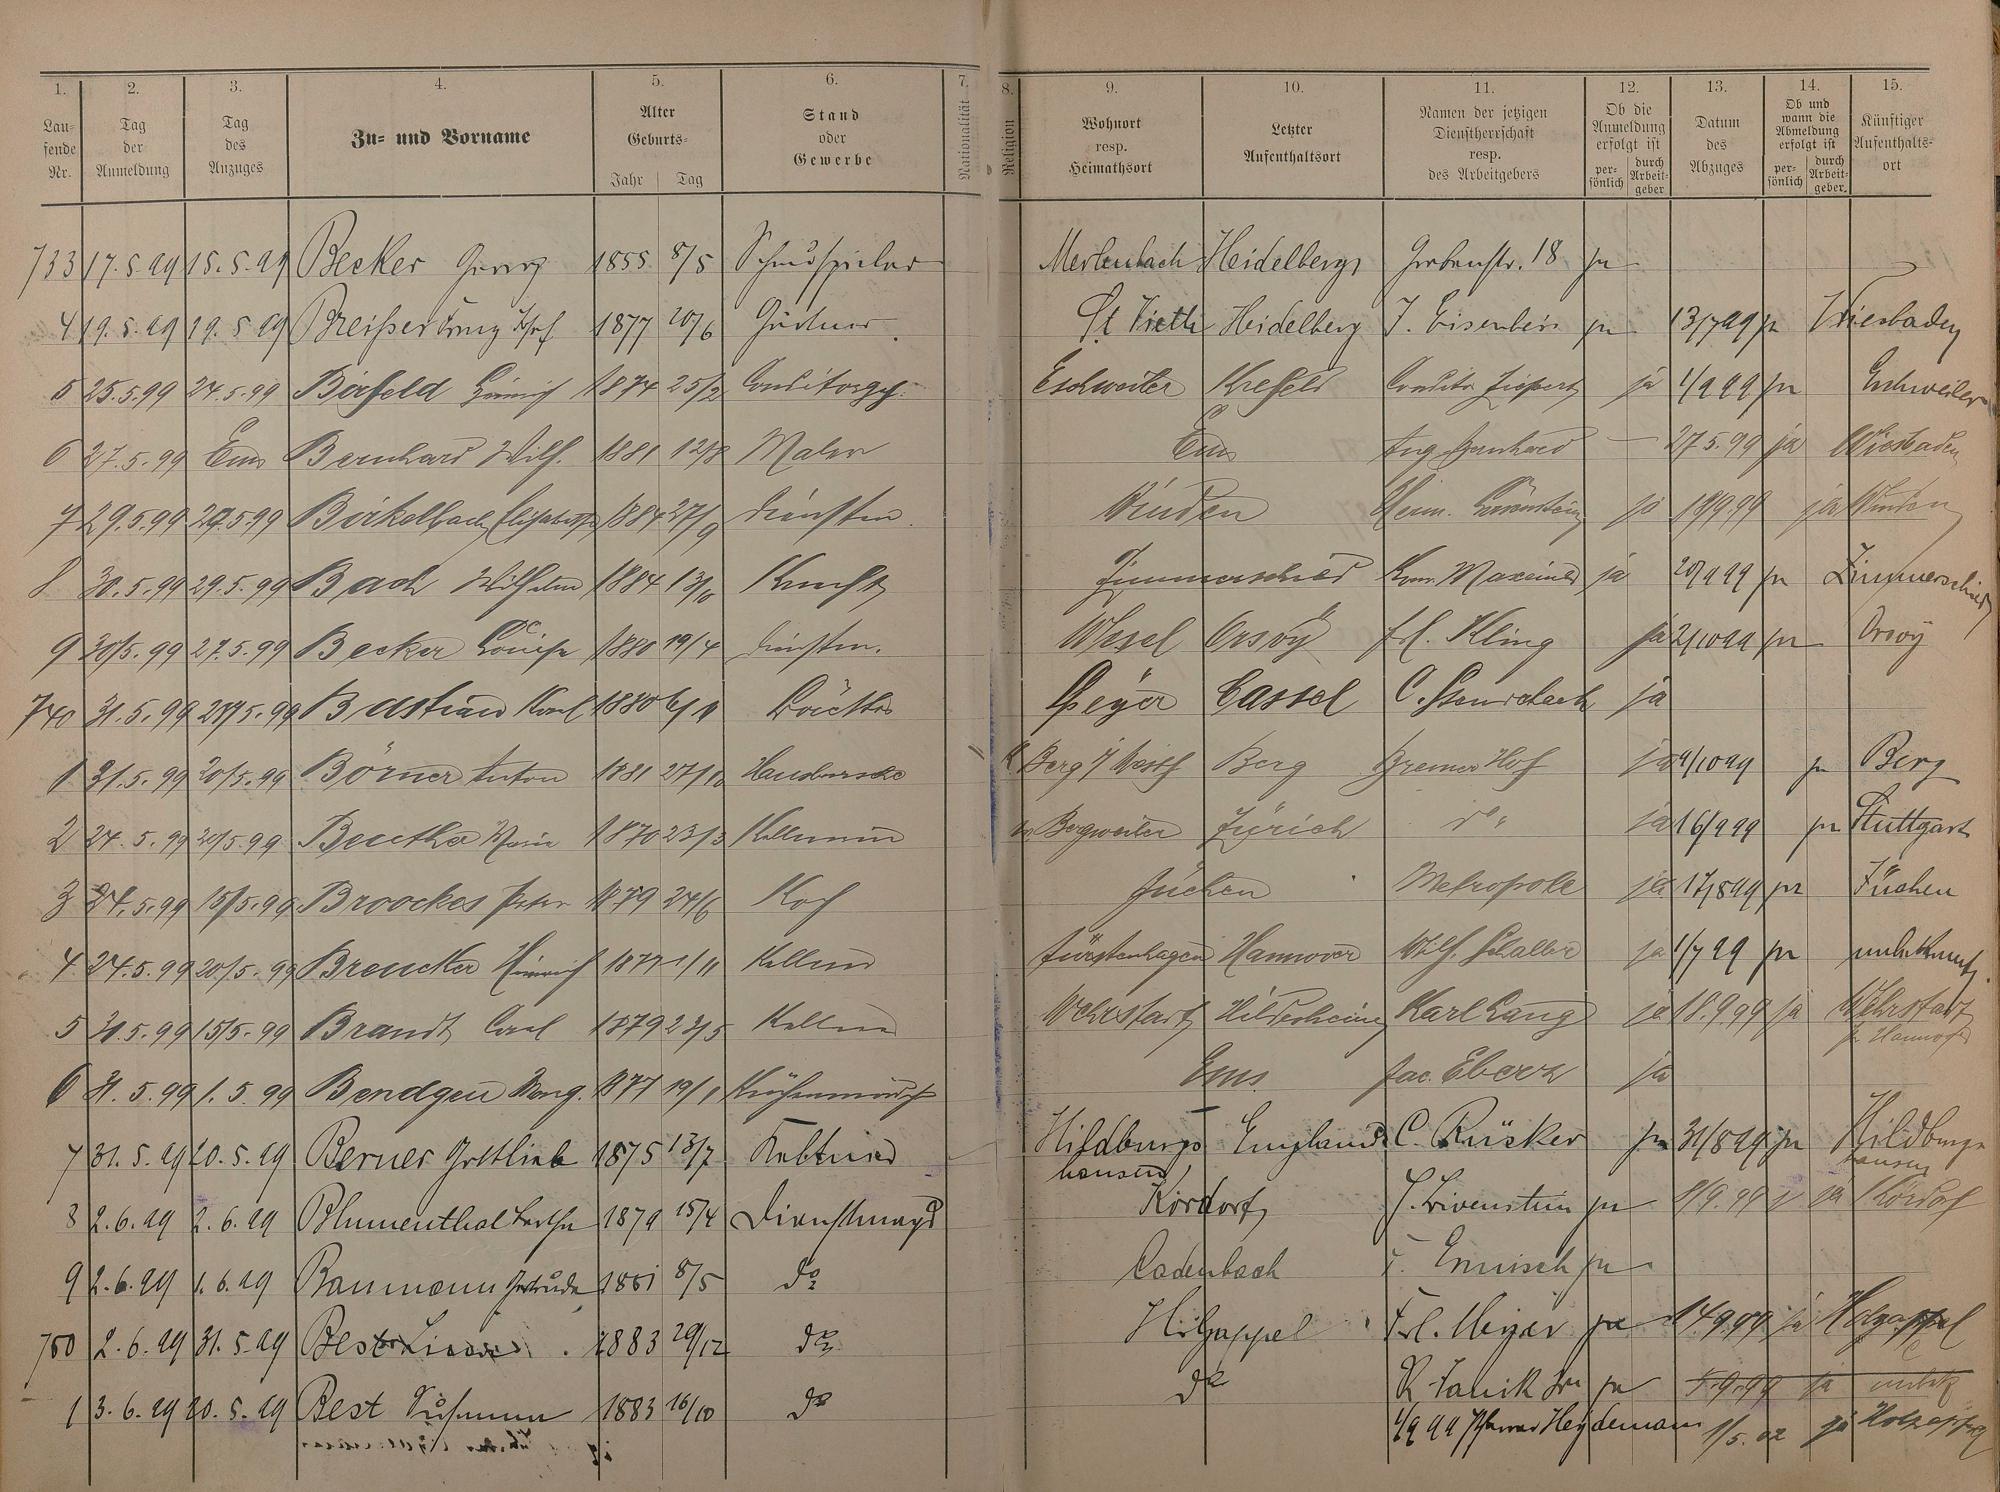 1. 2. 3. 4. 5. 6. 7. 8. 9. 10. 11. 12. 13. 14. 15.
Laufende Nr. Tag der Anmeldung Tag des Anzuges Zu- und Vorname Alter Geburts- Jahr Tag Stand oder Gewerbe Nationalität Religion Wohnort resp. Heimathsort Letzter Aufenthaltsort Namen der jetzigen Dienstherrschaft resp. des Arbeitgebers Ob die Anmeldung erfolgt ist persönlich durch Arbeitgeber Datum des Abzuges Ob und wann die Abmeldung erfolgt ist persönlich durch Arbeitgeber. Künftiger Aufenthaltsort
733 17.5.99 15.5.99 Becker Georg 1855 8/5 Schauspieler Heidelberg Grabenstr. 18 ja
4 19.5.99 19.5.99 Franz Josef 1877 20/6 Gärtner St Vieth Heidelberg J. ja 13/7 99 ja Wiesbaden
5 25.5.99 24.5.99 Birfeld Heinrich 1874 25/2 Conditorgeh. Eschweiler Krefeld Conditor ja 1/9 99 ja Eschweiler
6 27.5.99 Ems Bernhard Wilh. 1881 12/8 Maler Ems Aug Bernhard — 27.5.99 ja Wiesbaden
7 29.5.99 29.5.99 Birkelbach Elisabeth 1884 27/9 Dienstm. Winden Herm. Löwenstein ja 19/9.99 ja Winden
8 30.5.99 29.5.99 Bach Wilhelm 1884 Knecht Zimmerschied ja 20/9 99 ja Zimmerschied
9 30/5.99 27.5.99 Becker Louise 1880 19/4 Dienstm. Wesel Orsoy Frl. Kling ja 2/10 99 ja Orsoy
740 31.5.99 5.99 Bastian Karl 1880 Speyer Cassel C. ja
1 31.5.99 20/5.99 Börner Anton 1881 27/10 Hausbursche Berg Berg Bremer Hof ja 4/10 99 ja Berg
2 24.5.99 20/5.99 1870 23/3 Kellnerin Bergweiler Zürich do ja 16/9 99 ja Stuttgart
3 24.5.99 15/5.99 Broockes Peter 1879 24/6 Koch Jüchen Metropole ja 17/8 99 ja Jüchen
4 24.5.99 20/5.99 Breucker Heinrich 1877 1/11 Kellner Fürstenhagen Hannover Wilh. Schaller ja 1/7 99 ja unbekannt.
5 31.5.99 15/5.99 Brandt Carl 1879 23/5 Kellner Wehrstadt Hildesheim Karl Lang ja 18.9.99 ja Wehrstadt
6 31.5.99 1.5.99 Bendgen 1877 Ems Jac. Eberz ja
7 31.5.99 20.5.99 Berner Gottlieb 1875 13/7 Kellner Hildburgs England C. Rücker ja 31/8 99 ja Hildburg-
hausen hausen
8 2.6.99 2.6.99 Blumenthal Bertha 1879 15/4 Dienstmagd Kördorf J. Löwenstein ja 8/9.99 ja Kördorf
9 2.6.99 1.6.99 Baumann Gertrude 1881 8/5 do Cadenbach ja
750 2.6.99 31.5.99 Best 1883 29/12 do Holzappel Frl. Meyer ja 14.9.99 ja Holzappel
1 3.6.99 20.5.99 Best 1883 16/10 do do ja 5.9.99 ja
1/9 99 Pfarrer Heydemann 1/5.02 ja Holzappel